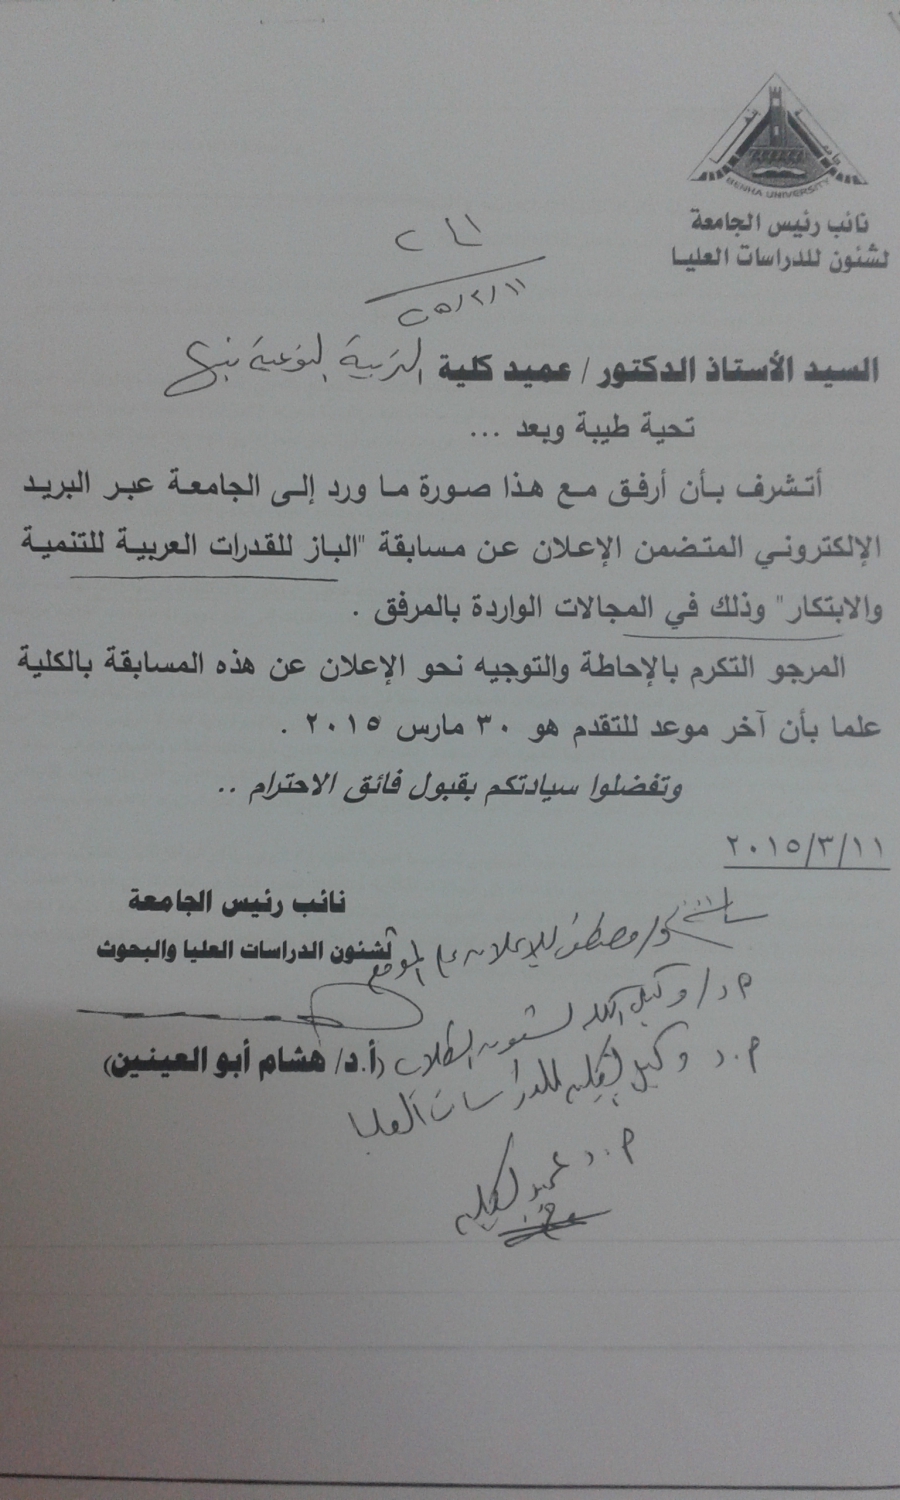 جامعة بنها
BENHA UNIVERSITY
نائب رئيس الجامعة
لشئون للدراسات العليا
السيد الأستاذ الدكتور / عميد كلية التربية النوعية ببنها
تحية طيبة وبعد ...
أتشرف بأن أرفق مع هذا صورة ما ورد إلى الجامعة عبر البريد
الإلكتروني المتضمن الإعلان عن مسابقة "الباز للقدرات العربية للتنمية
والابتكار" وذلك في المجالات الواردة بالمرفق .
المرجو التكرم بالإحاطة والتوجيه نحو الإعلان عن هذه المسابقة بالكلية
علما بأن آخر موعد للتقدم هو ٣٠ مارس ٢٠١٥ .
وتفضلوا سيادتكم بقبول فائق الاحترام ..
٢٠١٥/٣/١١
نائب رئيس الجامعة
لشئون الدراسات العليا والبحوث
(أ.د/ هشام أبو العينين)
د/ مصطفى للإعلان على الموقع
أ.د/ وكيل الكلية لشئون الطلاب
أ.د وكيل الكلية للدراسات العليا
أ.د عميد الكلية